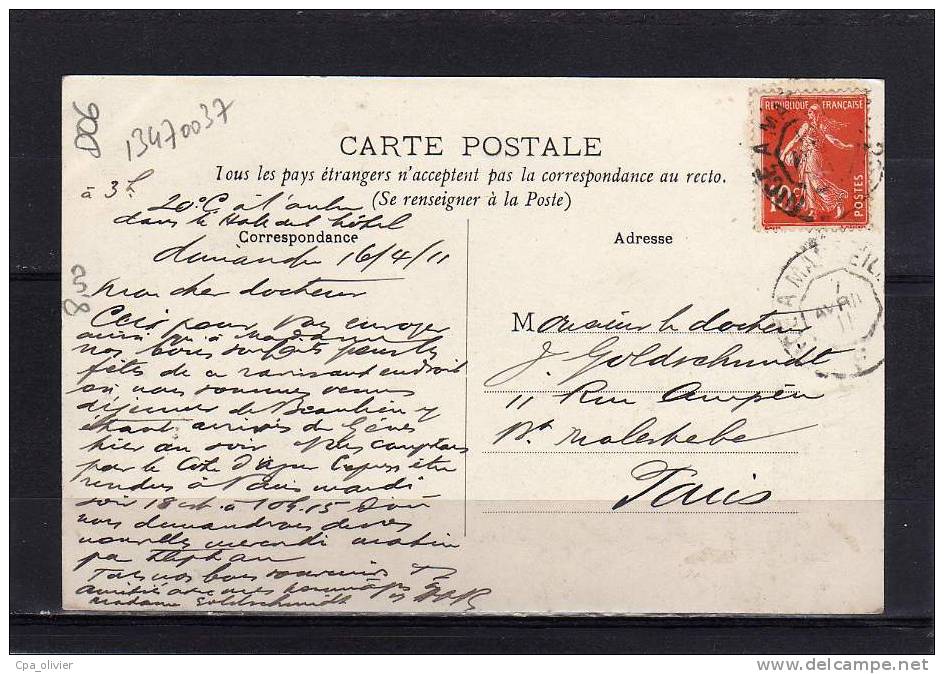 D06
13470037
CARTE POSTALE
Tous les pays étrangers n'acceptent pas la correspondance au recto.
(Se renseigner à la Poste)
à 3h
20°C à l'ombre
dans le Hall de l'hôtel
Correspondance
Adresse
dimanche 16/4/11
mon cher docteur
Ceci pour vous envoyer
ainsi qu'à Madame
nos bons souhaits pour les
fêtes de ce ravissant endroit
où nous sommes venus
déjeuner de Beaulieu y
étant arrivés de Gênes
hier au soir Nous comptons
par le Côte d'Azur Express être
rendus à Paris mardi
soir 18 ct à 10h.15 d'où
nous demanderons de vos
nouvelles mercredi matin
par téléphone
Tous nos bons souvenirs
amitiés avec mes hommages
Madame Goldschmidt
8
Monsieur le docteur
J. Goldschmidt
11 Rue Ampère
Bd Malesherbes
Paris
REPUBLIQUE FRANÇAISE
POSTES
10c
A MARSEILLE
AVRIL
11
Cpa_olivier
www.delcampe.net